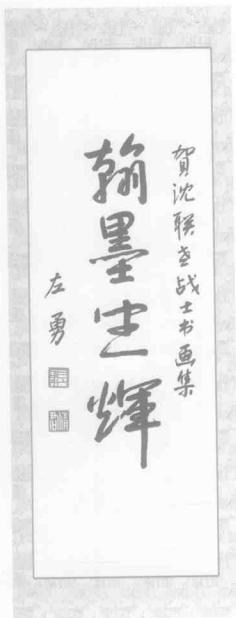 賀沈联老战士书画集
翰墨生輝
左勇